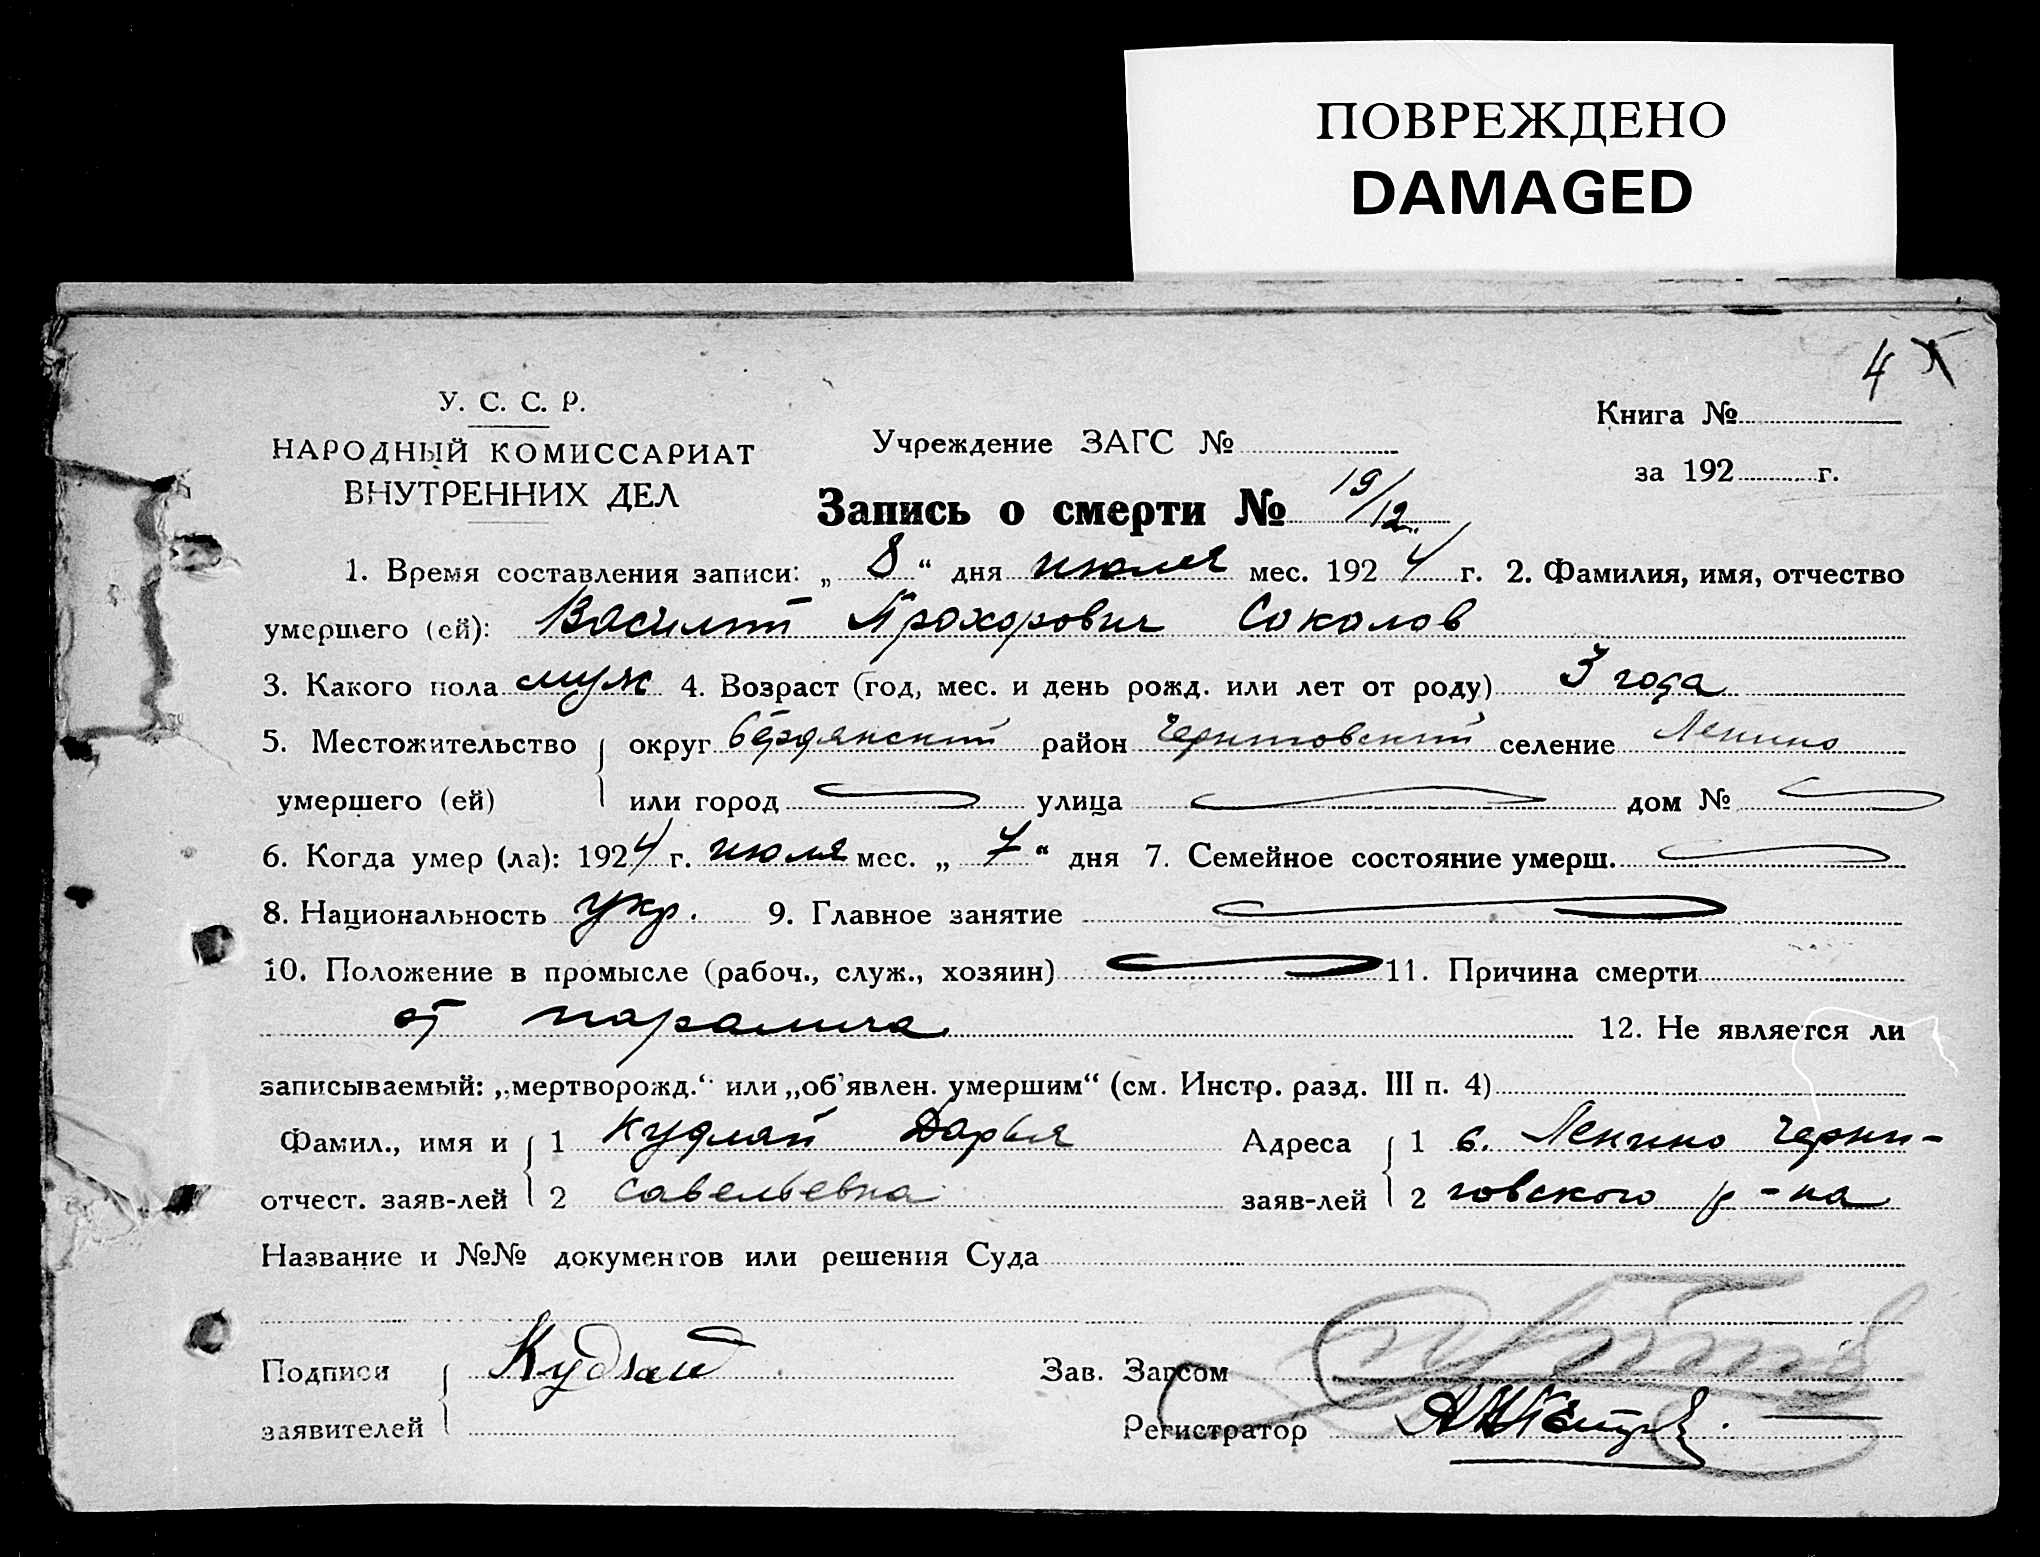 ПОВРЕЖДЕНО
DAMAGED
4
У. С. С. Р.
НАРОДНЫЙ КОМИССАРИАТ
ВНУТРЕННИХ ДЕЛ
Учреждение ЗАГС №
Книга №
за 192 г.
Запись о смерти № 19/12
1. Время составления записи: „ 8 “ дня июля мес. 192 4 г. 2. Фамилия, имя, отчество
умершего (ей): Василий Прохорович Соколов
3. Какого пола муж 4. Возраст (год, мес. и день рожд. или лет от роду) 3 года
5. Местожительство округ бердянский район Черниговский селение Ленино
умершего (ей) или город улица дом №
6. Когда умер (ла): 192 4 г. июля мес. „ 7 “ дня 7. Семейное состояние умерш.
8. Национальность укр. 9. Главное занятие
10. Положение в промысле (рабоч., служ., хозяин) 11. Причина смерти
от паралича 12. Не является ли
записываемый: „мертворожд.“ или „об'явлен. умершим“ (см. Инстр. разд. III п. 4)
Фамил., имя и 1 Кудлай Дарья Адреса 1 с. Ленино Черни-
отчест. заяв-лей 2 савельевна заяв-лей 2 говского р-на
Название и №№ документов или решения Суда
Подписи Кудлай Зав. Загсом
заявителей Регистратор